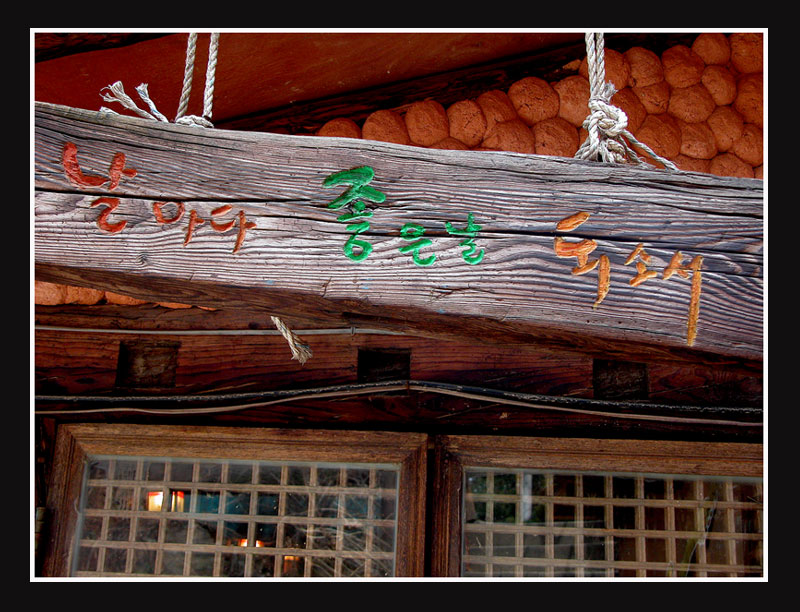 날마다 좋은날 되소서